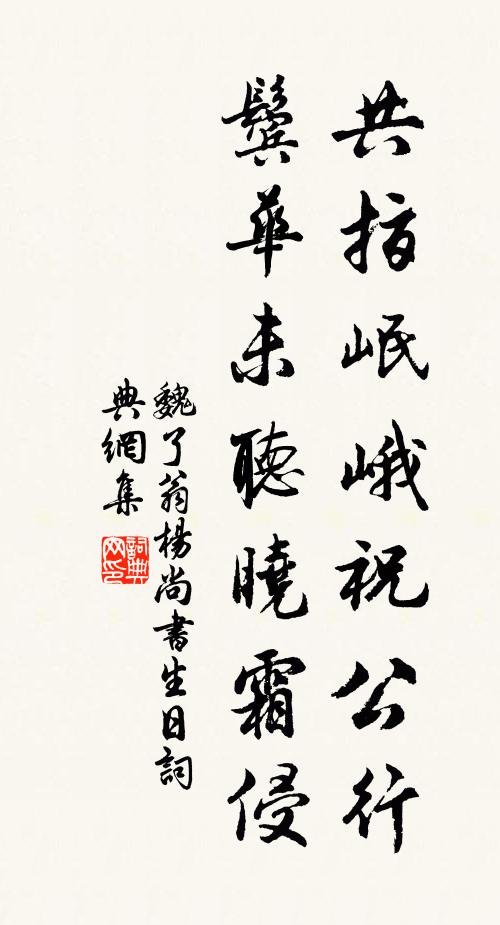 共指岷峨祝公行
鬓華未聽曉霜侵
魏了翁楊尚書生日詞
典網集
詞典网印